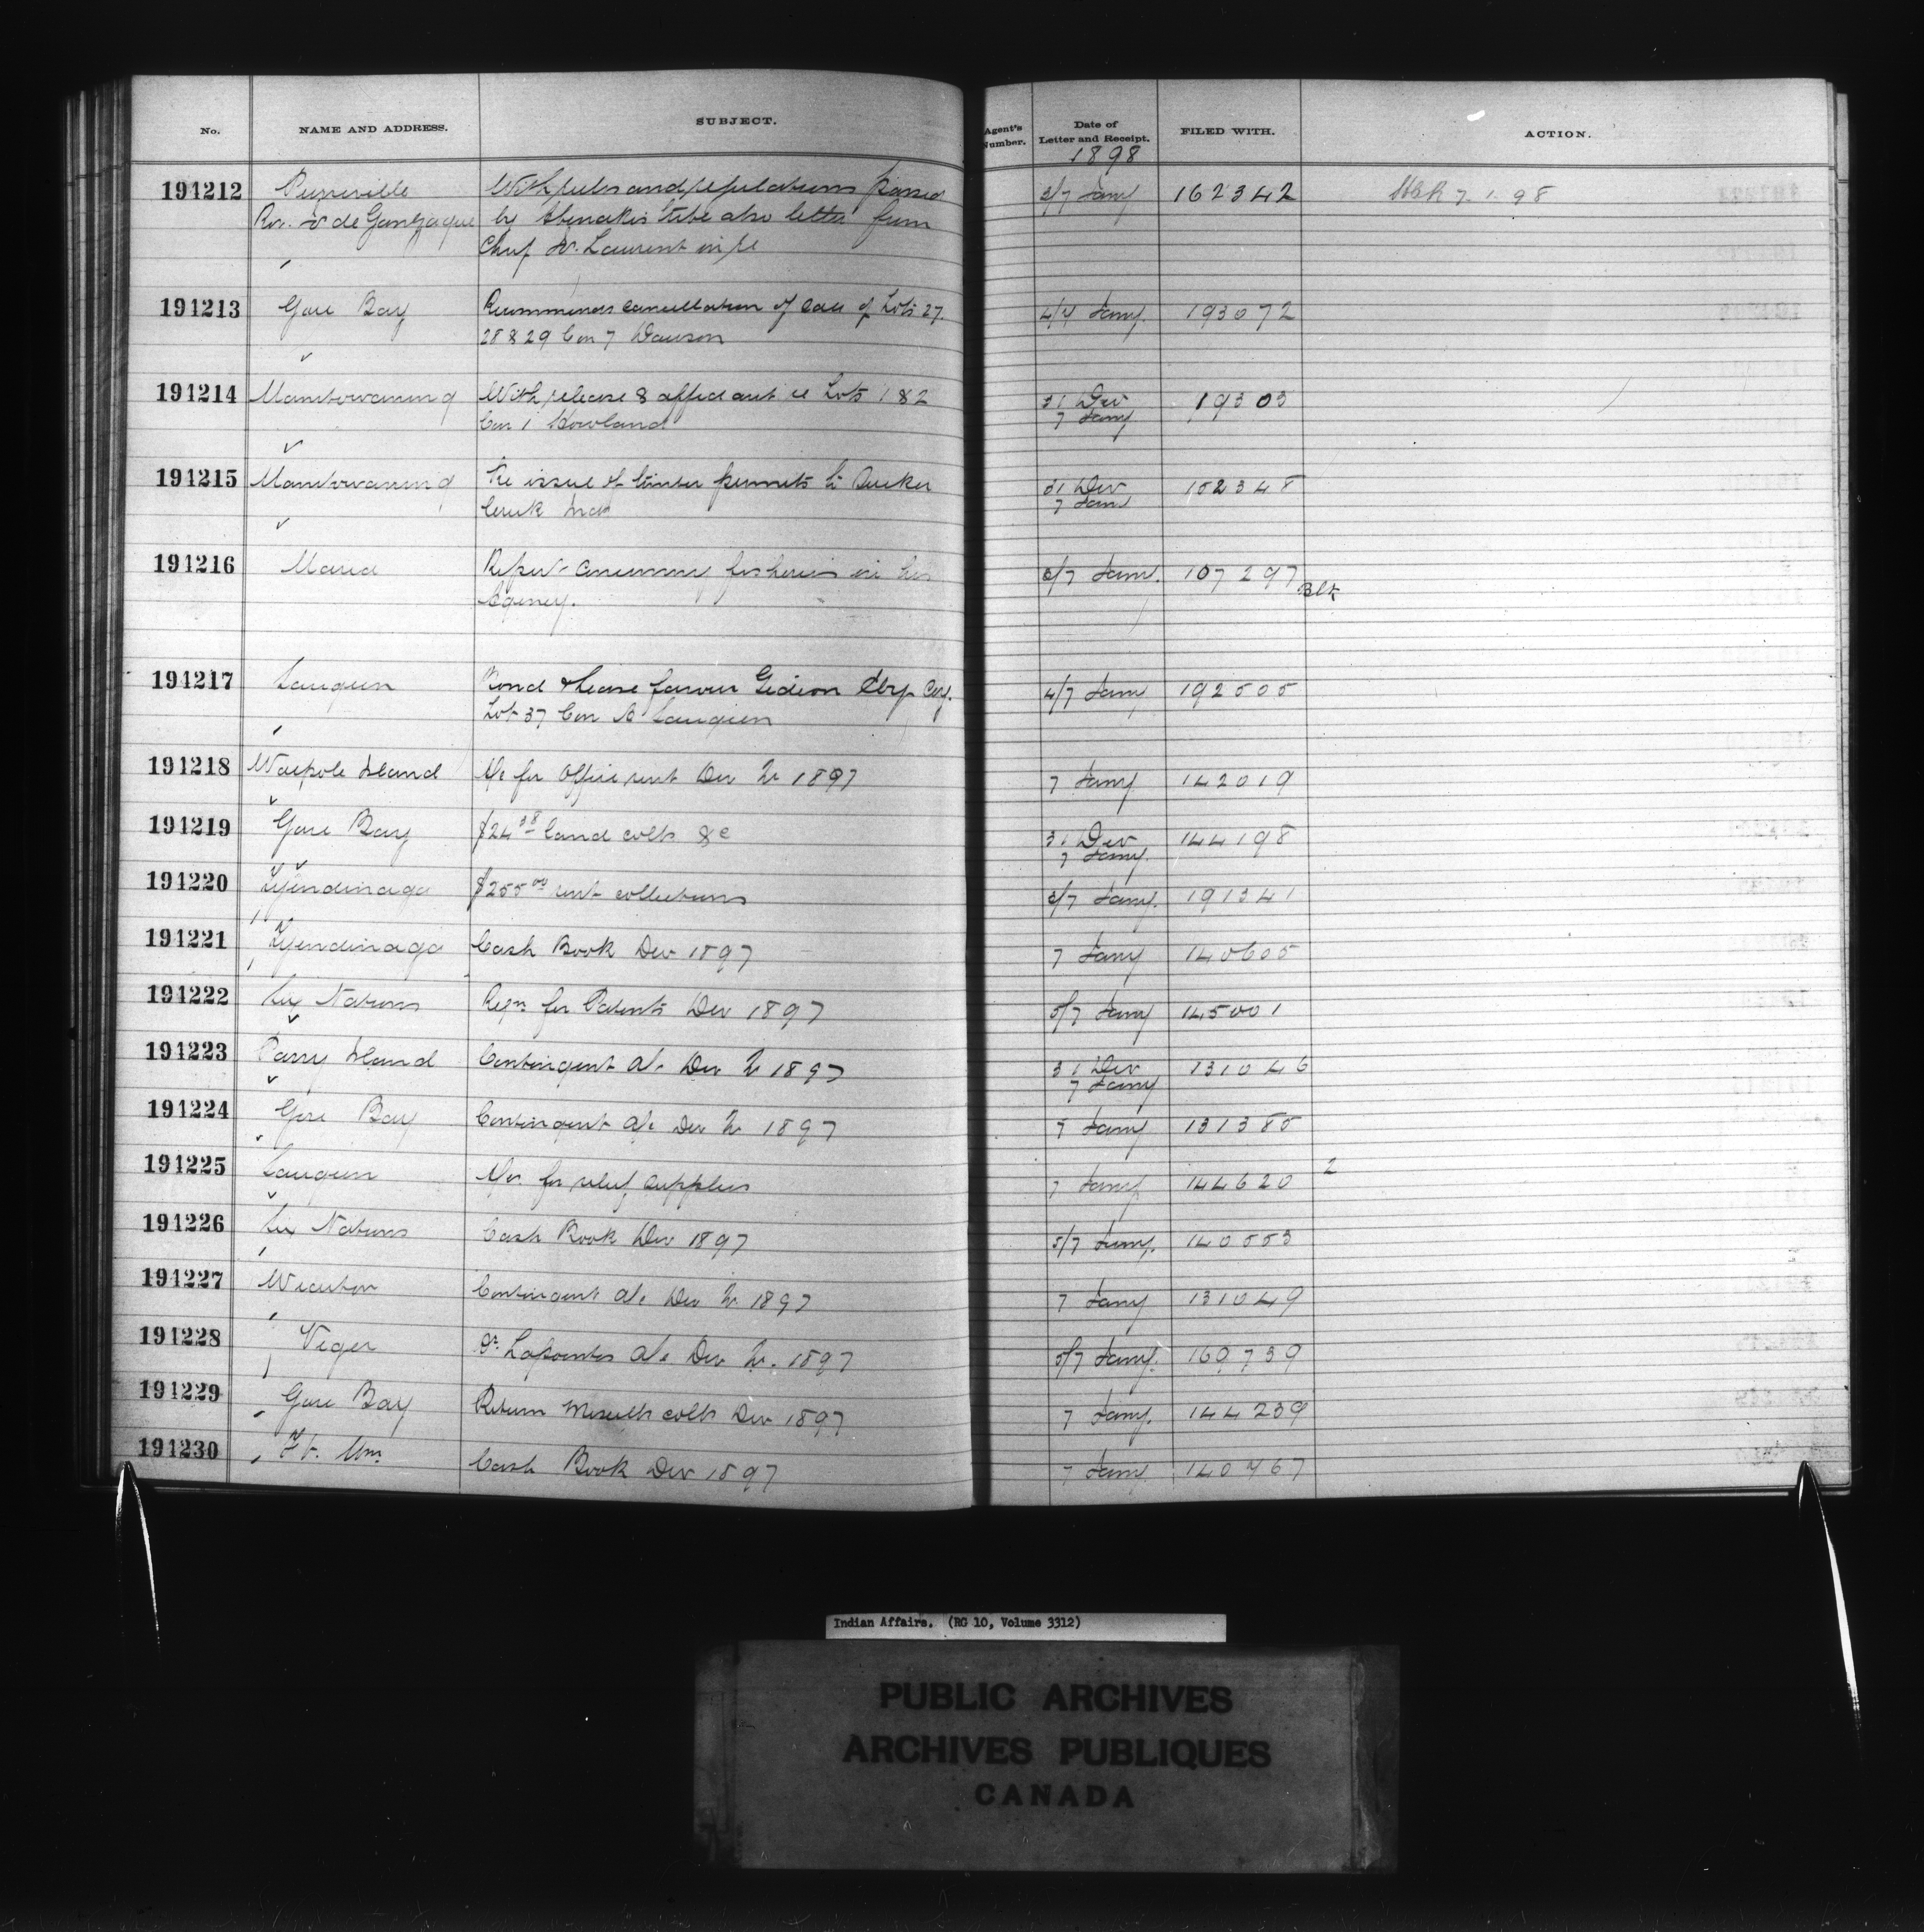 No. NAME AND ADDRESS. SUBJECT. Agent's Number. Date of Letter and Receipt. FILED WITH. ACTION.
1898
191212 Pierreville With rules and regulations passed 3/7 Jany 162342 7.1.98
Rev. de Gonzague by Abenakis tribe also letter from
Chief Laurent in re
191213 Gore Bay Recommends cancellation of sale of Lots 27. 4/7 Jany. 193072
28 & 29 Con 7 Dawson
191214 Manitowaning With release & affidavit re Lots 1 & 2 31 Dec 19303
Con 1 Howland 7 Jany
191215 Manitowaning Re issue of timber permits to Sucker 31 Dec 162348
Creek Inds 7 Jany
191216 Maria Report concerning fisheries in his 6/7 Jany. 107297 Blk
Agency.
191217 Saugeen Bond & lease favour Gideon 4/7 Jany 192505
Lot 37 Con Saugeen
191218 Walpole Island A/c for Office rent Dec Qr 1897 7 Jany 142019
191219 Gore Bay $24 38 land colls &c 31 Dec 144198
7 Jany.
191220 Tyendinaga $255 00 rent collections 6/7 Jany. 191341
191221 Tyendinaga Cash Book Dec 1897 7 Jany 140605
191222 Six Nations Reqn for Patents Dec 1897 5/7 Jany 145001
191223 Parry Island Contingent A/c Dec Qr 1897 31 Dec 131046
7 Jany
191224 Gore Bay Contingent A/c Dec Qr 1897 7 Jany 131385
191225 Saugeen for relief supplies 7 Jany 144620 2
191226 Six Nations Cash Book Dec 1897 5/7 Jany. 140553
191227 Wiarton Contingent A/c Dec Qr 1897 7 Jany 131049
191228 Viger Lapointes A/c Dec Qr. 1897 5/7 Jany. 169739
191229 Gore Bay Return colls Dec 1897 7 Jany. 144239
191230 Ft. Wm. Cash Book Dec 1897 7 Jany 140767
Indian Affairs. (RG 10, Volume 3312)
PUBLIC ARCHIVES
ARCHIVES PUBLIQUES
CANADA